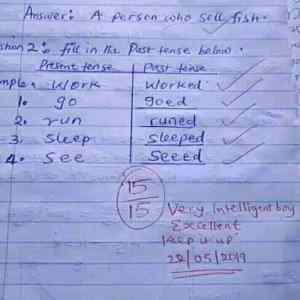 Answer: A person who sell fish.
stion 2: fill in the Past tense below.
Present tense Past tense
mple. work worked
1. go goed
2. run runed
3. sleep sleeped
4. see seeed
15
15
Very intelligent boy
Excellent
Keep it up
22/05/2019